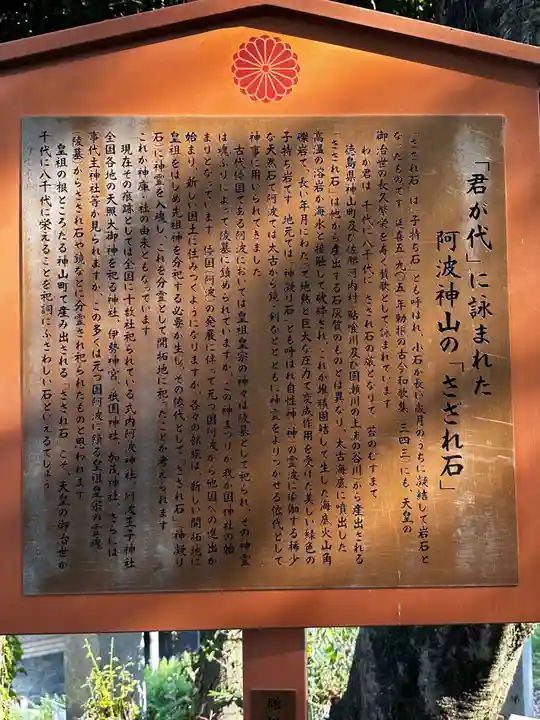 「君が代」に詠まれた
阿波神山の「さざれ石」
「さざれ石」は「子持ち石」とも呼ばれ、小石が長い歳月のうちに凝結して岩石と
なったものです。延喜五(九〇五)年勅撰の古今和歌集(三四三)にも、天皇の
御治世の長久繁栄を寿ぐ賛歌として詠まれています。
わが君は 千代に八千代に さざれ石の 巌となりて 苔のむすまで
徳島県神山町及び佐那河内村(鮎喰川及び園瀬川の上流の谷川)から産出される
「さざれ石」は他から産出する石灰質のものとは異なり、太古海底に噴出した
高温の溶岩が海水と接触して破砕され、これが堆積固結して生じた海底火山角
礫岩で、長い年月にわたって地熱と巨大な圧力で変成作用を受けた美しい緑色の
子持ち岩です。地元では「神凝り石」とも呼ばれ自性神(神)の霊波に感伽する稀少
な天然石で阿波では太古から鏡、剣などとともに神霊をよりつかせる依代として
神事に用いられてきました。
古代倭国である阿波においては皇祖皇宗の神々は陵墓として祀られ、その神霊
は魂ふりによって陵墓に鎮められていますが、この神まつりが我が国神社の始
まりとなっています。倭国(阿波)の発展に伴って元つ国阿波から他国への進出が
始まり、新しい国土に住みつくようになりますが、各々の部族は、新しい開拓地に
皇祖をはじめ先祖神を分祀する必要が生じ、その依代として「さざれ石」(神凝り
石)に神霊を入魂し、これを分霊として開拓地に祀ったことが考えられます。
これが神庫(社)の由来ともなっています。
現在その痕跡としては全国に十数社祀られている式内阿波神社、阿波王子神社
全国各地の天照大御神を祀る神社、伊勢神宮、祇園神社、加茂神社、さらには
事代主神社等が見られますが、この多くは元つ国阿波に鎮る皇祖皇宗の霊魂
(陵墓)からさざれ石や鏡などに分霊され祀られたものと思われます。
皇祖の根どころたる神山町で産み出される「さざれ石」こそ、天皇の御治世が
千代に八千代に栄えることを祀詞にふさわしい石といえるでしょう。